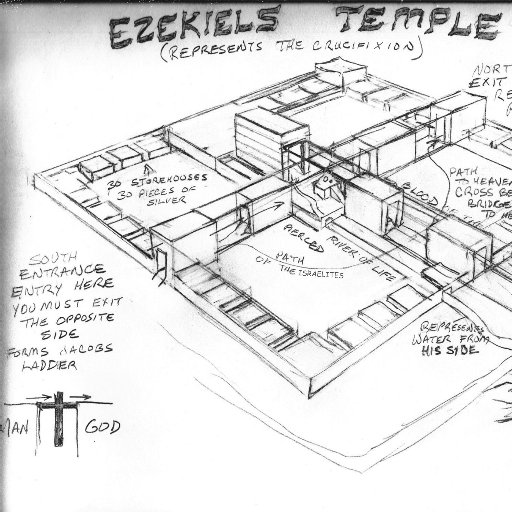 EZEKIELS TEMPLE
(REPRESENTS THE CRUCIFIXION)
NORT
EXIT
RE
30 STOREHOUSES
30 PIECES OF
SILVER
PATH
TO HEAVEN
CROSS BE
BRIDGE
TO HE
BLOOD
PIERCED
RIVER OF LIFE
PATH
OF THE ISRAELITES
SOUTH
ENTRANCE
ENTRY HERE
YOU MUST EXIT
THE OPPOSITE
SIDE
FORMS JACOBS
LADDIER
REPRESENTS
WATER FROM
HIS SIDE
MAN GOD